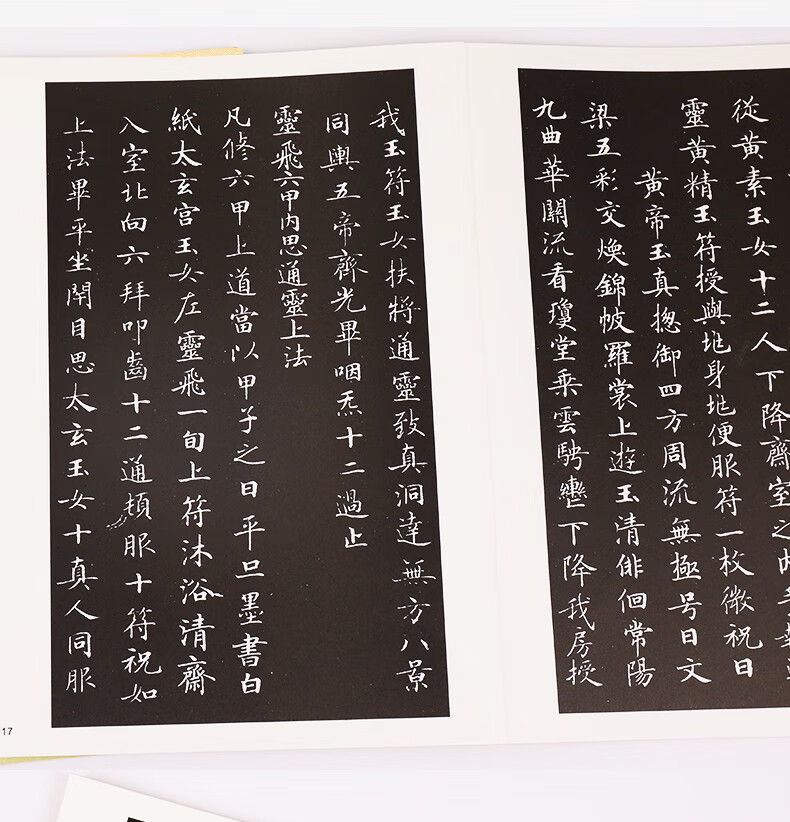 從黃素玉女十二人下降齋室之內手
靈黃精玉符授與地身地便服符一枚微祝曰
黃帝玉真揔御四方周流無極号曰文
梁五彩交煥錦帔羅裳上遊玉清俳佪常陽
九曲華關流看瓊堂乘雲騁轡下降我房授
我玉符玉女扶將通靈致真洞達無方八景
同輿五帝齊光畢咽炁十二過止
靈飛六甲內思通靈上法
凡修六甲上道當以甲子之日平旦墨書白
紙太玄宫玉女左靈飛一旬上符沐浴清齋
入室北向六拜叩齒十二通頓服十符祝如
上法畢平坐閇目思太玄玉女十真人同服
17